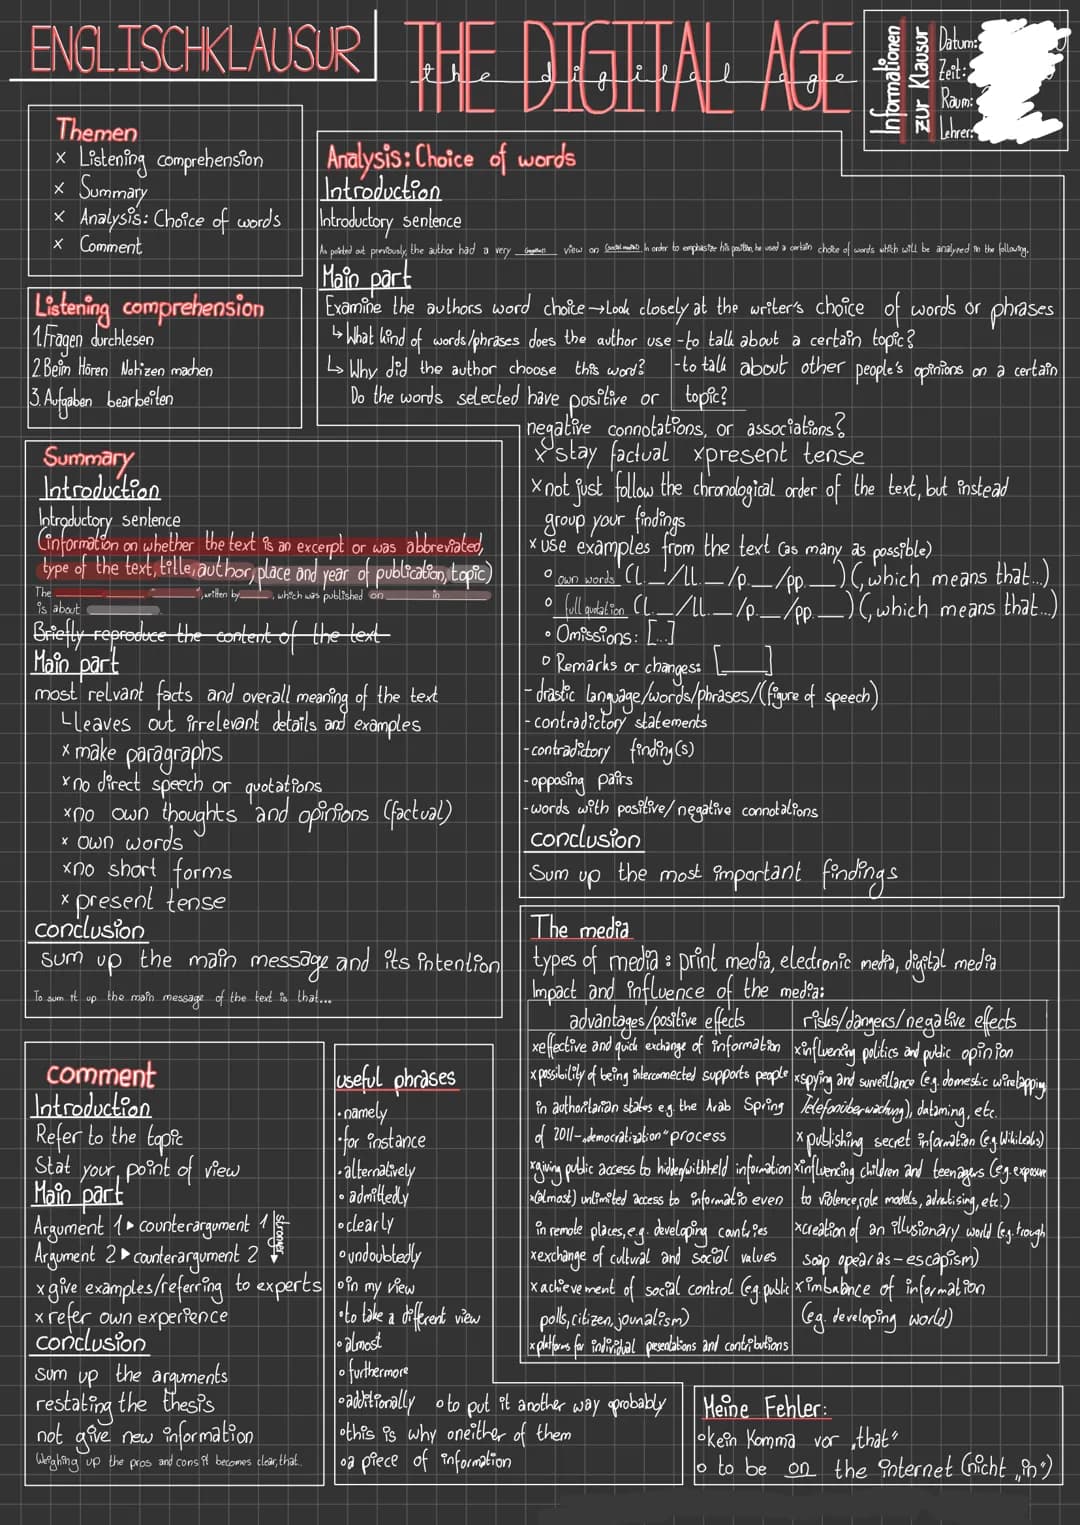 ENGLISCHKLAUSUR
THE DIGITAL AGE
the digital age
Informationen
zur Klausur
Datum:
Zeit:
Raum:
Lehrer:
Themen
x Listening comprehension
x Summary
x Analysis: Choice of words
x Comment
Listening comprehension
1. Fragen durchlesen
2. Beim Hören Notizen machen
3. Aufgaben bearbeiten
Summary
Introduction
Introductory sentence
(information on whether the text is an excerpt or was abbreviated,
type of the text, title, author, place and year of publication, topic)
The ____ "____", written by ____, which was published on ____ in ____
is about ____.
Briefly reproduce the content of the text
Main part
most relvant facts and overall meaning of the text
↳ leaves out irrelevant details and examples
x make paragraphs
x no direct speech or quotations
x no own thoughts and opinions (factual)
x own words
x no short forms
x present tense
conclusion
sum up the main message and its intention
To sum it up the main message of the text is that...
Analysis: Choice of words
Introduction
Introductory sentence
As pointed out previously, the author had a very ____ view on ____. In order to emphasize his position, he used a certain choice of words which will be analysed in the following.
Main part
Examine the authors word choice → Look closely at the writer's choice of words or phrases
↳ What kind of words/phrases does the author use - to talk about a certain topic?
↳ Why did the author choose this word? - to talk about other people's opinions on a certain
Do the words selected have positive or topic?
negative connotations, or associations?
x stay factual x present tense
x not just follow the chronological order of the text, but instead
group your findings
x use examples from the text (as many as possible)
° own words (l.__/ll.__/p.__/pp.__) (, which means that...)
° full quotation (l.__/ll.__/p.__/pp.__) (, which means that...)
° Omissions: [...]
° Remarks or changes: [____]
- drastic language/words/phrases/(figure of speech)
- contradictory statements
- contradictory finding(s)
- opposing pairs
- words with positive/negative connotations
conclusion
Sum up the most important findings
The media
types of media: print media, electronic media, digital media
Impact and influence of the media:
advantages/positive effects
x effective and quick exchange of information
x possibility of being interconnected supports people
in authoritarian states e.g. the Arab Spring
of 2011 - „democratization" process
x giving public access to hidden/withheld information
x (almost) unlimited access to informatio even
in remote places, e.g. developing countries
x exchange of cultural and social values
x achievement of social control (e.g. public
polls, citizen, jounalism)
x platforms for individual presentations and contributions
risks/dangers/negative effects
x influencing politics and public opinion
x spying and surveillance (e.g. domestic wiretapping
Telefonüberwachung), dataming, etc.
x publishing secret information (e.g. Wikileaks)
x influencing children and teenagers (e.g. exposure
to violence, role models, advertising, etc.)
x creation of an illusionary world (e.g. trough
soap operas - escapism)
x imbalance of information
(e.g. developing world)
comment
Introduction
Refer to the topic
Stat your point of view
Main part
Argument 1 ▸ counterargument 1
Argument 2 ▸ counterargument 2
stronger
x give examples/referring to experts
x refer own experience
conclusion
sum up the arguments
restating the thesis
not give new information
Weighing up the pros and cons it becomes clear, that...
useful phrases
• namely
• for instance
• alternatively
• admittedly
• clearly
• undoubtedly
• in my view
• to take a different view
• almost
• furthermore
• additionally • to put it another way • probably
• this is why • neither of them
• a piece of information
Meine Fehler:
• kein Komma vor „that"
• to be on the internet (nicht „in")